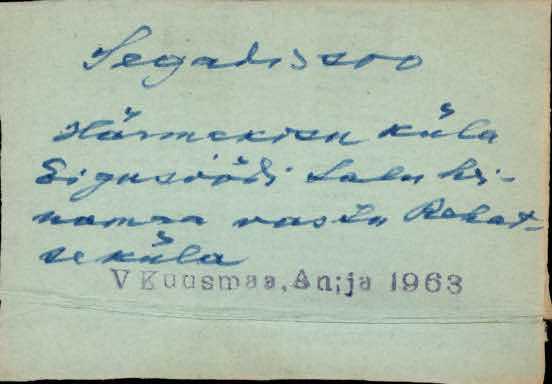 Segadissoo
Härmakosu küla
Sigusöödi Salu hi-
namaa vastu Rahat-
se küla
V Kuusmaa, Anija 1963